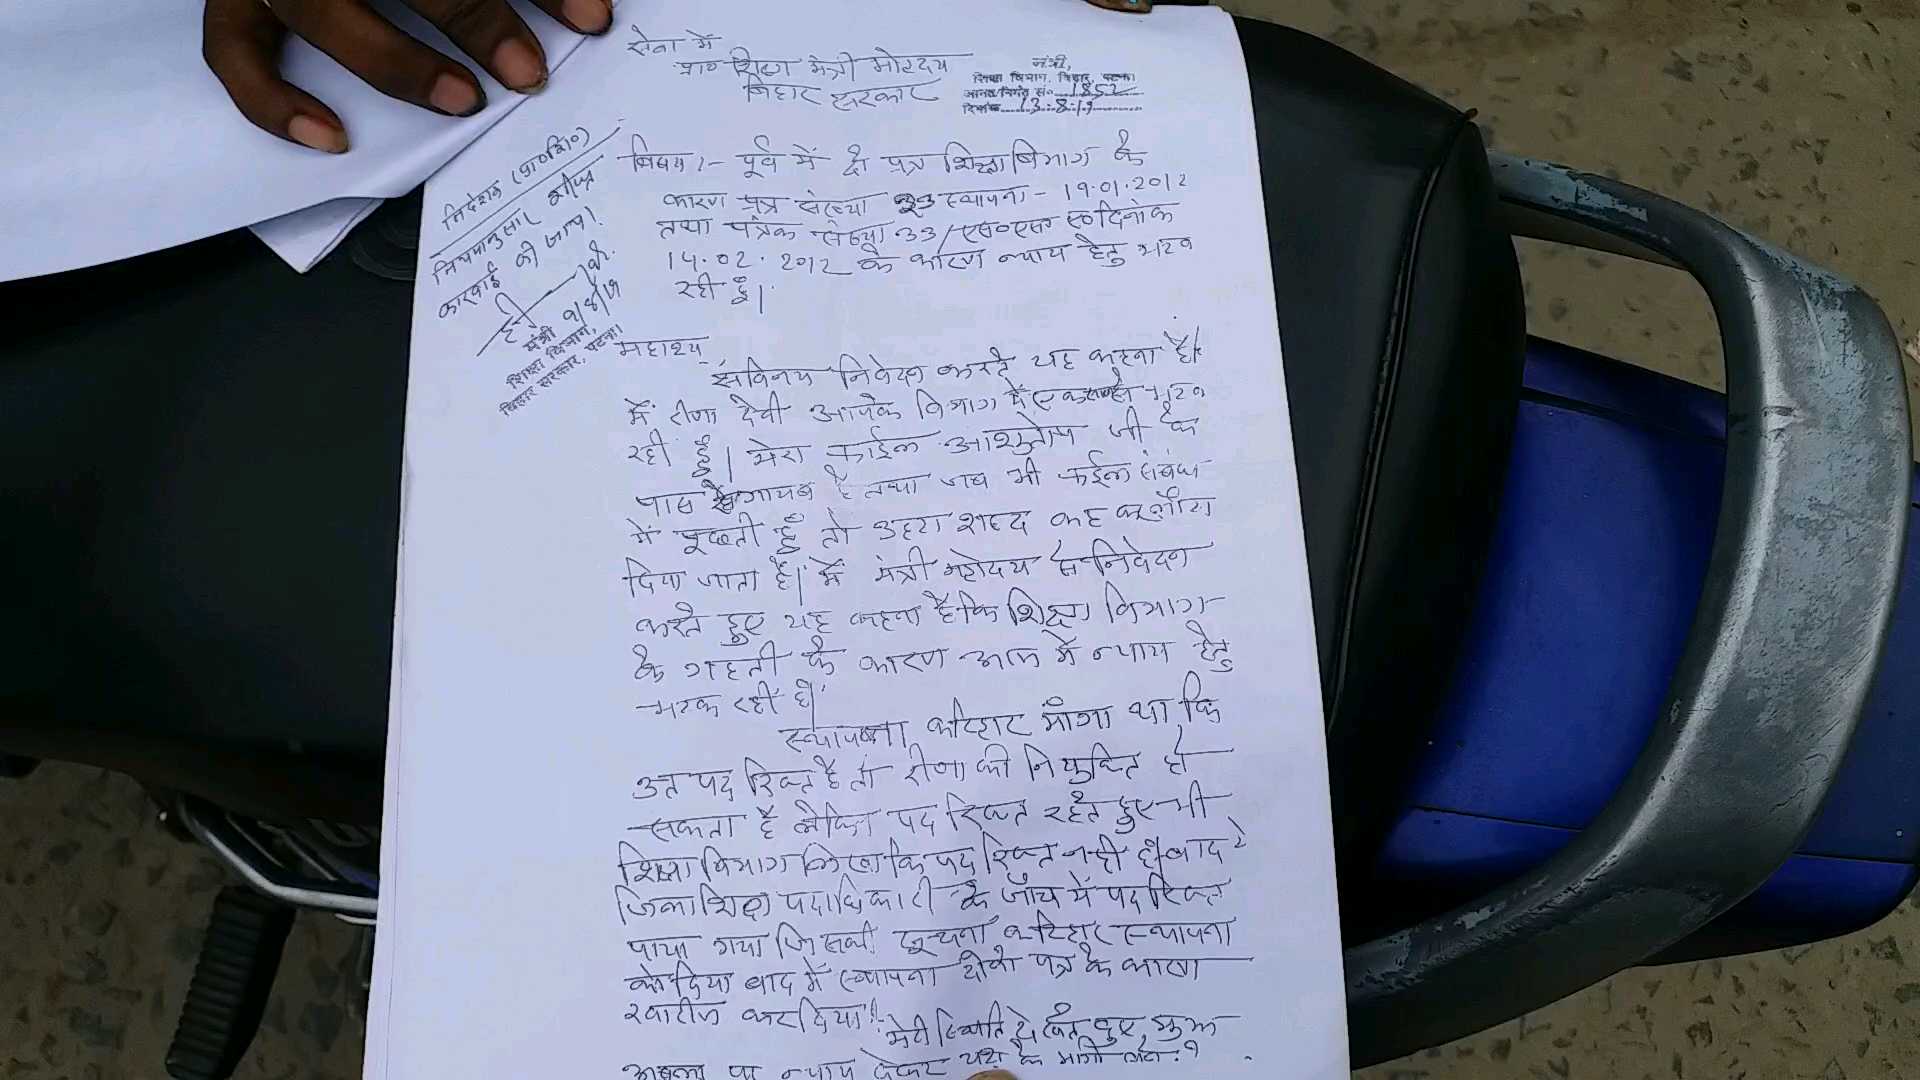 सेवा में
प्रा० शिक्षा मंत्री मोहदय
बिहार सरकार
मंत्री,
शिक्षा विभाग, बिहार, पटना
आगत/निर्गत सं० 1852
दिनांक 13.8.19
निदेशक (प्रा०शि०)
नियमानुसार शीघ्र
कारवाई की जाय।
मंत्री
शिक्षा विभाग,
बिहार सरकार, पटना।
विषय:- पूर्व में दो पत्र शिक्षा विभाग के
कारण पत्र संख्या 33 स्थापना - 19.01.2012
तथा पत्रंक संख्या 33/एस०एस० ए० दिनांक
14.02.2012 के कारण न्याय हेतु भटक
रही हुँ।
महाश्य
सविनय निवेदन करते यह कहना है।
में रीना देवी आपके विभाग में भटक
रही हुँ। मेरा फाईल आशुतोष जी के
पास से गायब है तथा जब भी फाईल संबंध
में पूछती हुँ तो उहटा शब्द कह कर लौटा
दिया जाता है। में मंत्री महोदय से निवेदन
करते हुए यह कहना है कि शिक्षा विभाग
के गहती के कारण आज में न्याय हेतु
भटक रही हो।
स्थापना कटिहार माँगा था कि
उत पद रिक्त है तो रीना की नियुक्ति हो
सकता है लेकिन पद रिक्त रहते हुए भी
शिक्षा विभाग लिखा कि पद रिक्त नही है। बाद में
जिला शिक्षा पदाधिकारी के जाँच में पद रिक्त
पाया गया जिसकी सूचना कटिहार स्थापना
को दिया बाद में स्थापना दोनो पत्र के कारण
खारीज कर दिया।
मेरी स्थिति देखते हुए मुझ
अबला पर न्याय देकर